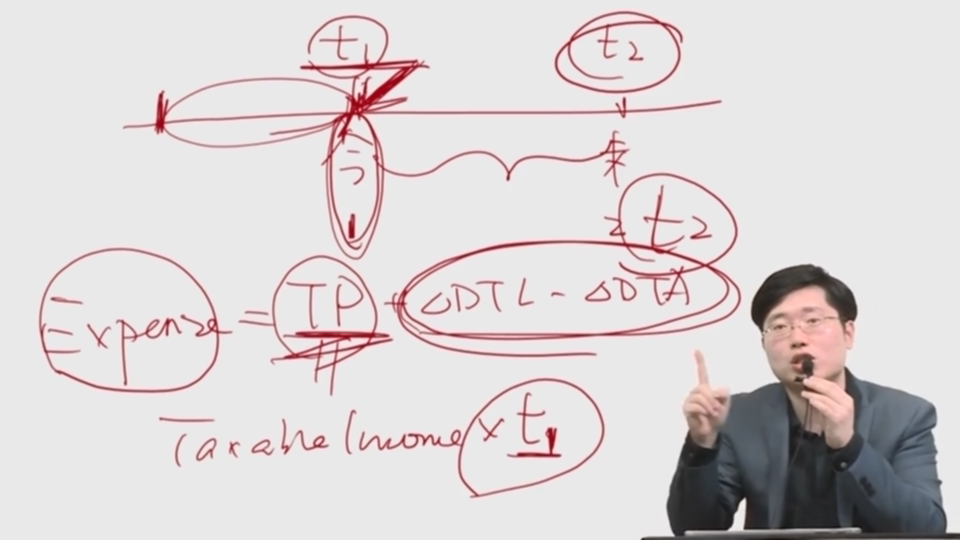 t1 t2
t2
Expense = TP + △DTL - △DTA
Taxable Income × t1